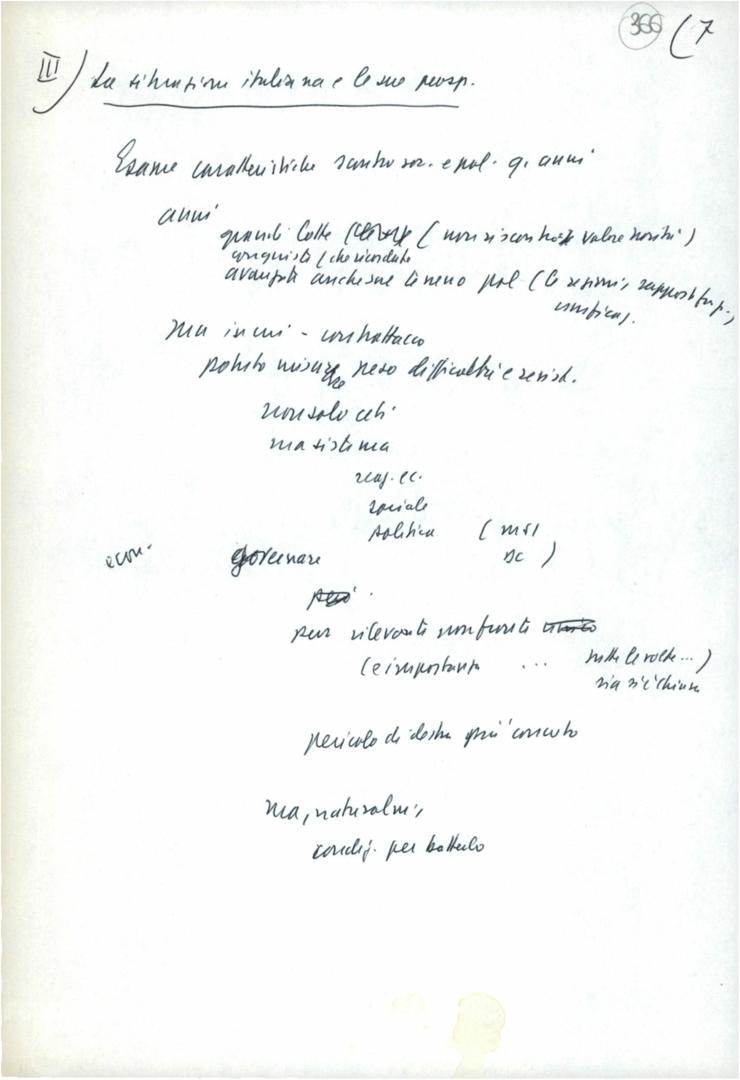 366 (7
III) La situazione italiana e le sue prosp.
Esame caratteristiche scontro soc. e pol. q. anni
anni
grandi lotte (non riscontro valore nostri)
conquiste (che ricordate
avanzate anche sul terreno pol (le regioni, rapporti
unificaz.
Ma in cui - contrattacco
potuto misurare peso difficoltà e resist.
non solo ceti
ma sistema
reaz. ec.
sociale
politica (MSI
econ. governare DC)
però
pur rilevanti non
(e importanza ... tutte le volte...)
sia si è chiusa
pericolo di destra più concreto
ma, naturalm.,
condiz. per batterlo